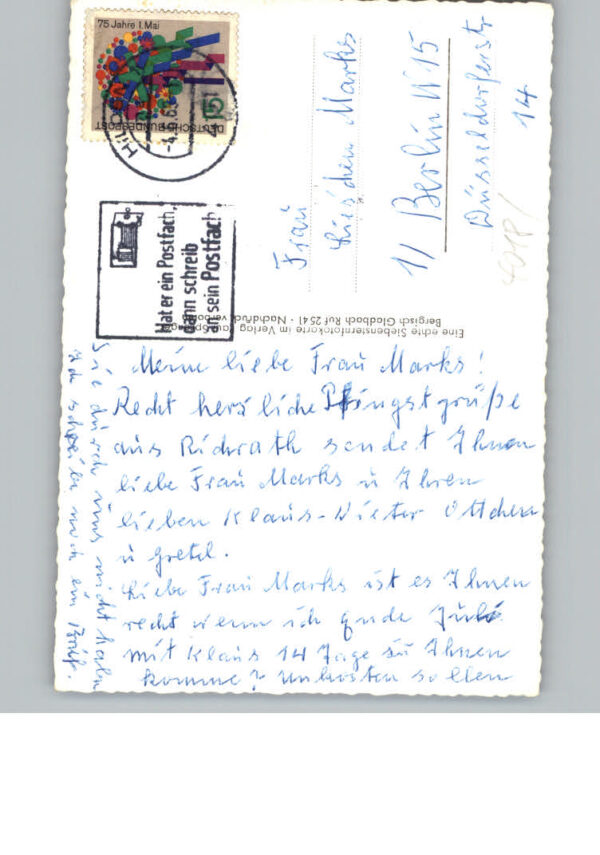 75 Jahre 1. Mai
DEUTSCHE BUNDESPOST
15
HILDEN
-4.6.65
Hat er ein Postfach,
dann schreib
an sein Postfach
Frau
Lieschen Marks
1/ Berlin W 15
Düsseldorferstr
14
Eine echte Siebensternfotokarte im Verlag
Bergisch Gladbach Ruf 2541 · Nachdruck verboten
Meine liebe Frau Marks!
Recht herzliche Pfingstgrüße
aus Richrath sendet Ihnen
liebe Frau Marks u Ihren
lieben Klaus-Dieter Ottchen
u Gretel.
Liebe Frau Marks ist es Ihnen
recht wenn ich ende Juli
mit Klaus 14 Tage zu Ihnen
komme? Unkosten sollen
Sie durch uns nicht haben
Ich schreibe noch ein Brief.